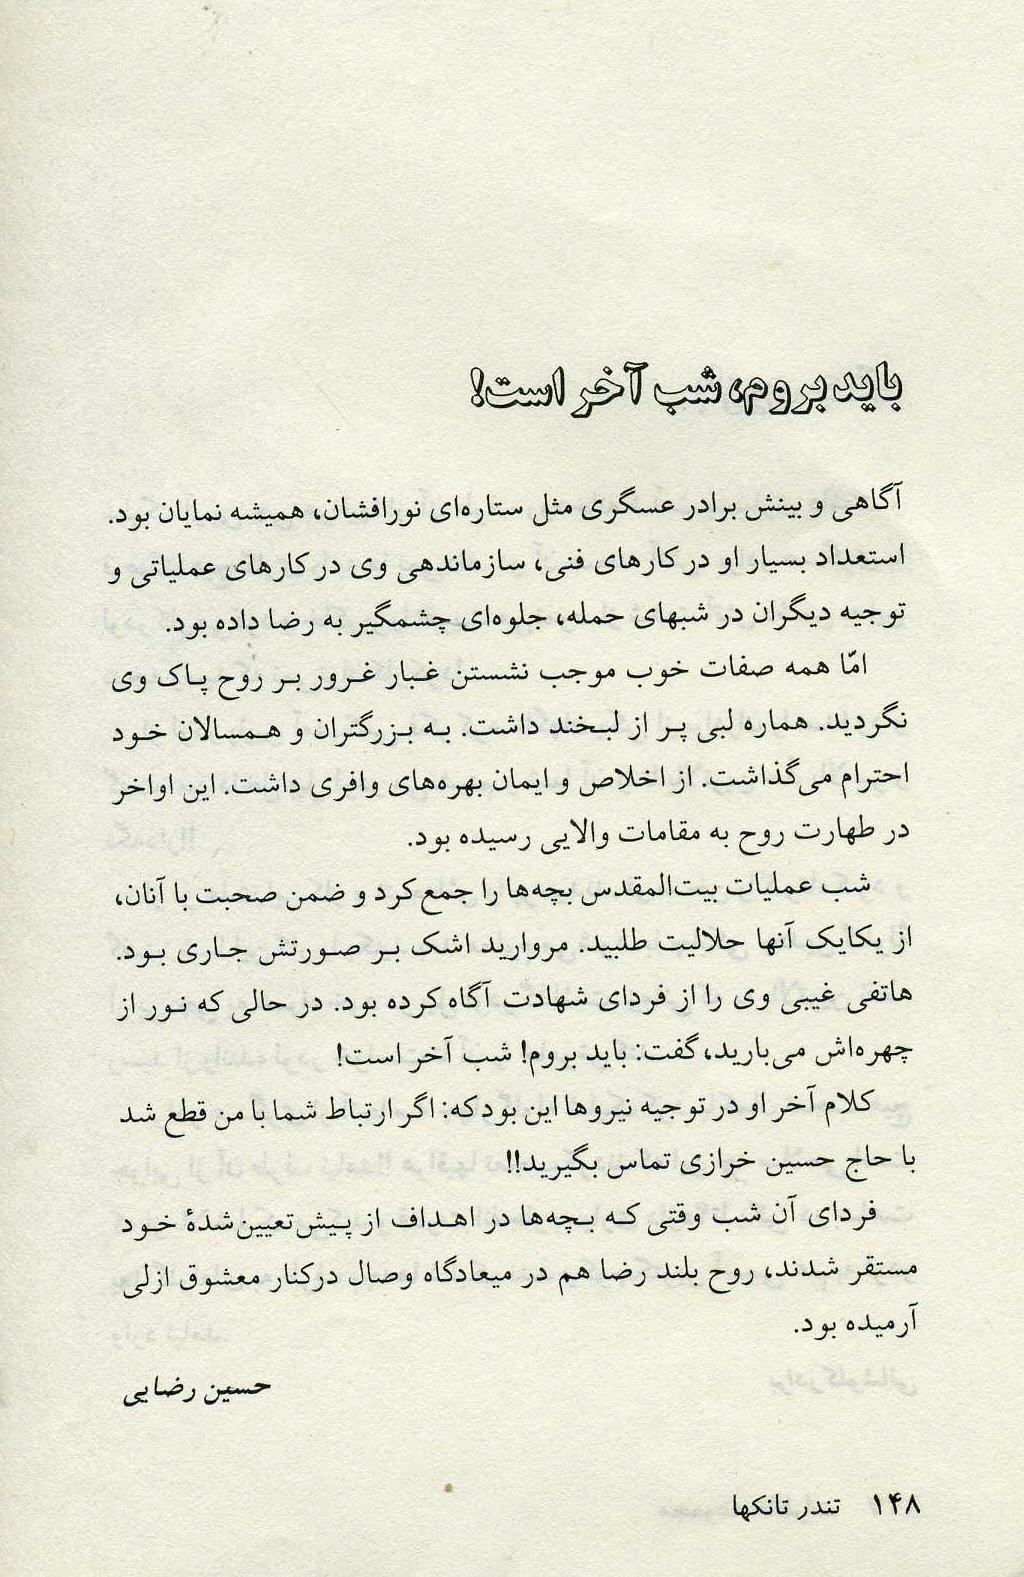 باید بروم، شب آخر است!
آگاهی و بینش برادر عسگری مثل ستاره‌ای نورافشان، همیشه نمایان بود.
استعداد بسیار او در کارهای فنی، سازماندهی وی در کارهای عملیاتی و
توجیه دیگران در شبهای حمله، جلوه‌ای چشمگیر به رضا داده بود.
امّا همه صفات خوب موجب نشستن غبار غرور بر روح پاک وی
نگردید. هماره لبی پر از لبخند داشت. به بزرگتران و همسالان خود
احترام می‌گذاشت. از اخلاص و ایمان بهره‌های وافری داشت. این اواخر
در طهارت روح به مقامات والایی رسیده بود.
شب عملیات بیت‌المقدس بچه‌ها را جمع کرد و ضمن صحبت با آنان،
از یکایک آنها حلالیت طلبید. مروارید اشک بر صورتش جاری بود.
هاتفی غیبی وی را از فردای شهادت آگاه کرده بود. در حالی که نور از
چهره‌اش می‌بارید، گفت: باید بروم! شب آخر است!
کلام آخر او در توجیه نیروها این بود که: اگر ارتباط شما با من قطع شد
با حاج حسین خرازی تماس بگیرید!!
فردای آن شب وقتی که بچه‌ها در اهداف از پیش‌تعیین‌شدهٔ خود
مستقر شدند، روح بلند رضا هم در میعادگاه وصال در کنار معشوق ازلی
آرمیده بود.
حسین رضایی
۱۴۸ تندر تانکها